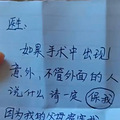 医生:
如果手术中出现
意外,不管外面的人
说什么,请一定 保我
因为我的父母